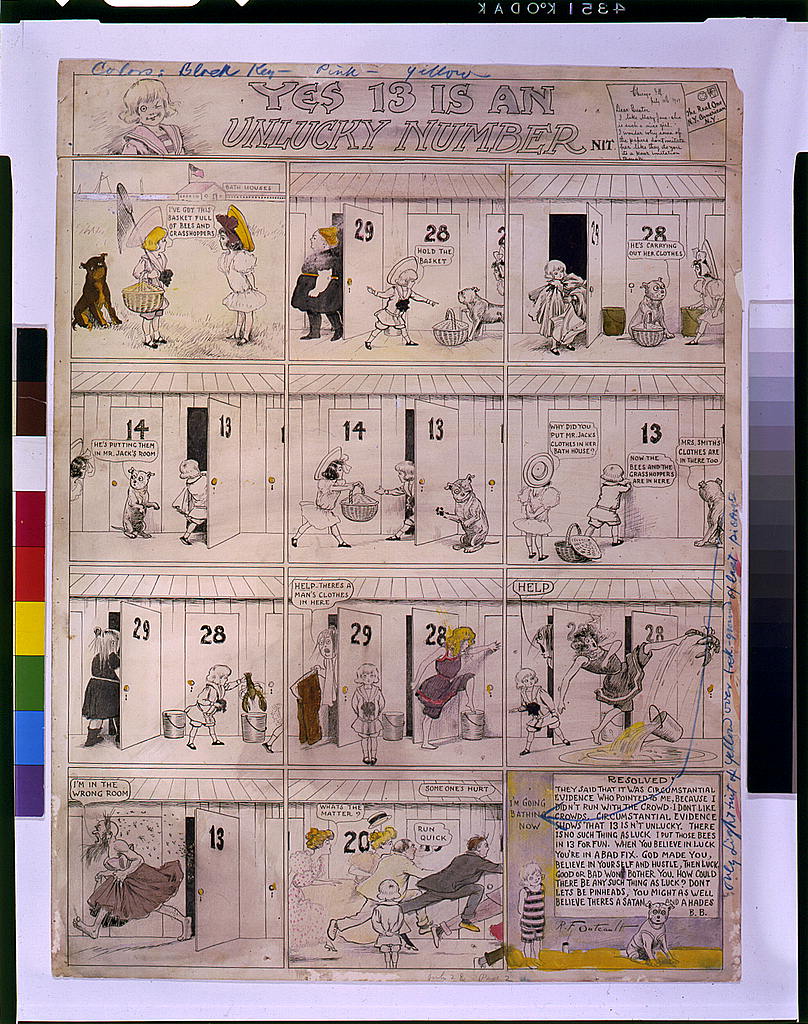 4351 KODAK
Colors: Black Key- Pink- Yellow
YE$ 13 IS AN
UNLUCKY NUMBER NIT
Dear Buster
I like Mary Jane she
is such a nice girl.
I wonder why some of
the papers dont imitate
her like they do you
The Real One
N.Y.
BATH HOUSES
I'VE GOT THIS
BASKET FULL
OF BEES AND
GRASSHOPPERS
29
28
HOLD THE
BASKET
29
28
HE'S CARRYING
OUT HER CLOTHES
14
13
HE'S PUTTING THEM
IN MR. JACK'S ROOM
14
13
WHY DID YOU
PUT MR. JACKS
CLOTHES IN HER
BATH HOUSE?
13
NOW THE
BEES AND THE
GRASSHOPPERS
ARE IN HERE
MRS. SMITH'S
CLOTHES ARE
IN THERE TOO
29
28
HELP-THERE'S A
MAN'S CLOTHES
IN HERE
29
28
HELP
28
I'M IN THE
WRONG ROOM
13
SOME ONES HURT
WHATS THE
MATTER?
RUN
QUICK
20
I'M GOING
BATHING
NOW
RESOLVED!
THEY SAID THAT IT WAS CIRCUMSTANTIAL
EVIDENCE WHO POINTED TO ME, BECAUSE I
DIDN'T RUN WITH THE CROWD. I DONT LIKE
CROWDS. CIRCUMSTANTIAL EVIDENCE
SHOWS THAT 13 ISN'T UNLUCKY. THERE
IS NO SUCH THING AS LUCK. I PUT THOSE BEES
IN 13 FOR FUN. WHEN YOU BELIEVE IN LUCK
YOU'RE IN A BAD FIX. GOD MADE YOU,
BELIEVE IN YOURSELF AND HUSTLE, THEN LUCK
GOOD OR BAD WONT BOTHER YOU. HOW COULD
THERE BE ANY SUCH THING AS LUCK? DONT
LETS BE PINHEADS, YOU MIGHT AS WELL
BELIEVE THERES A SATAN AND A HADES
B. B.
R.F. Outcault